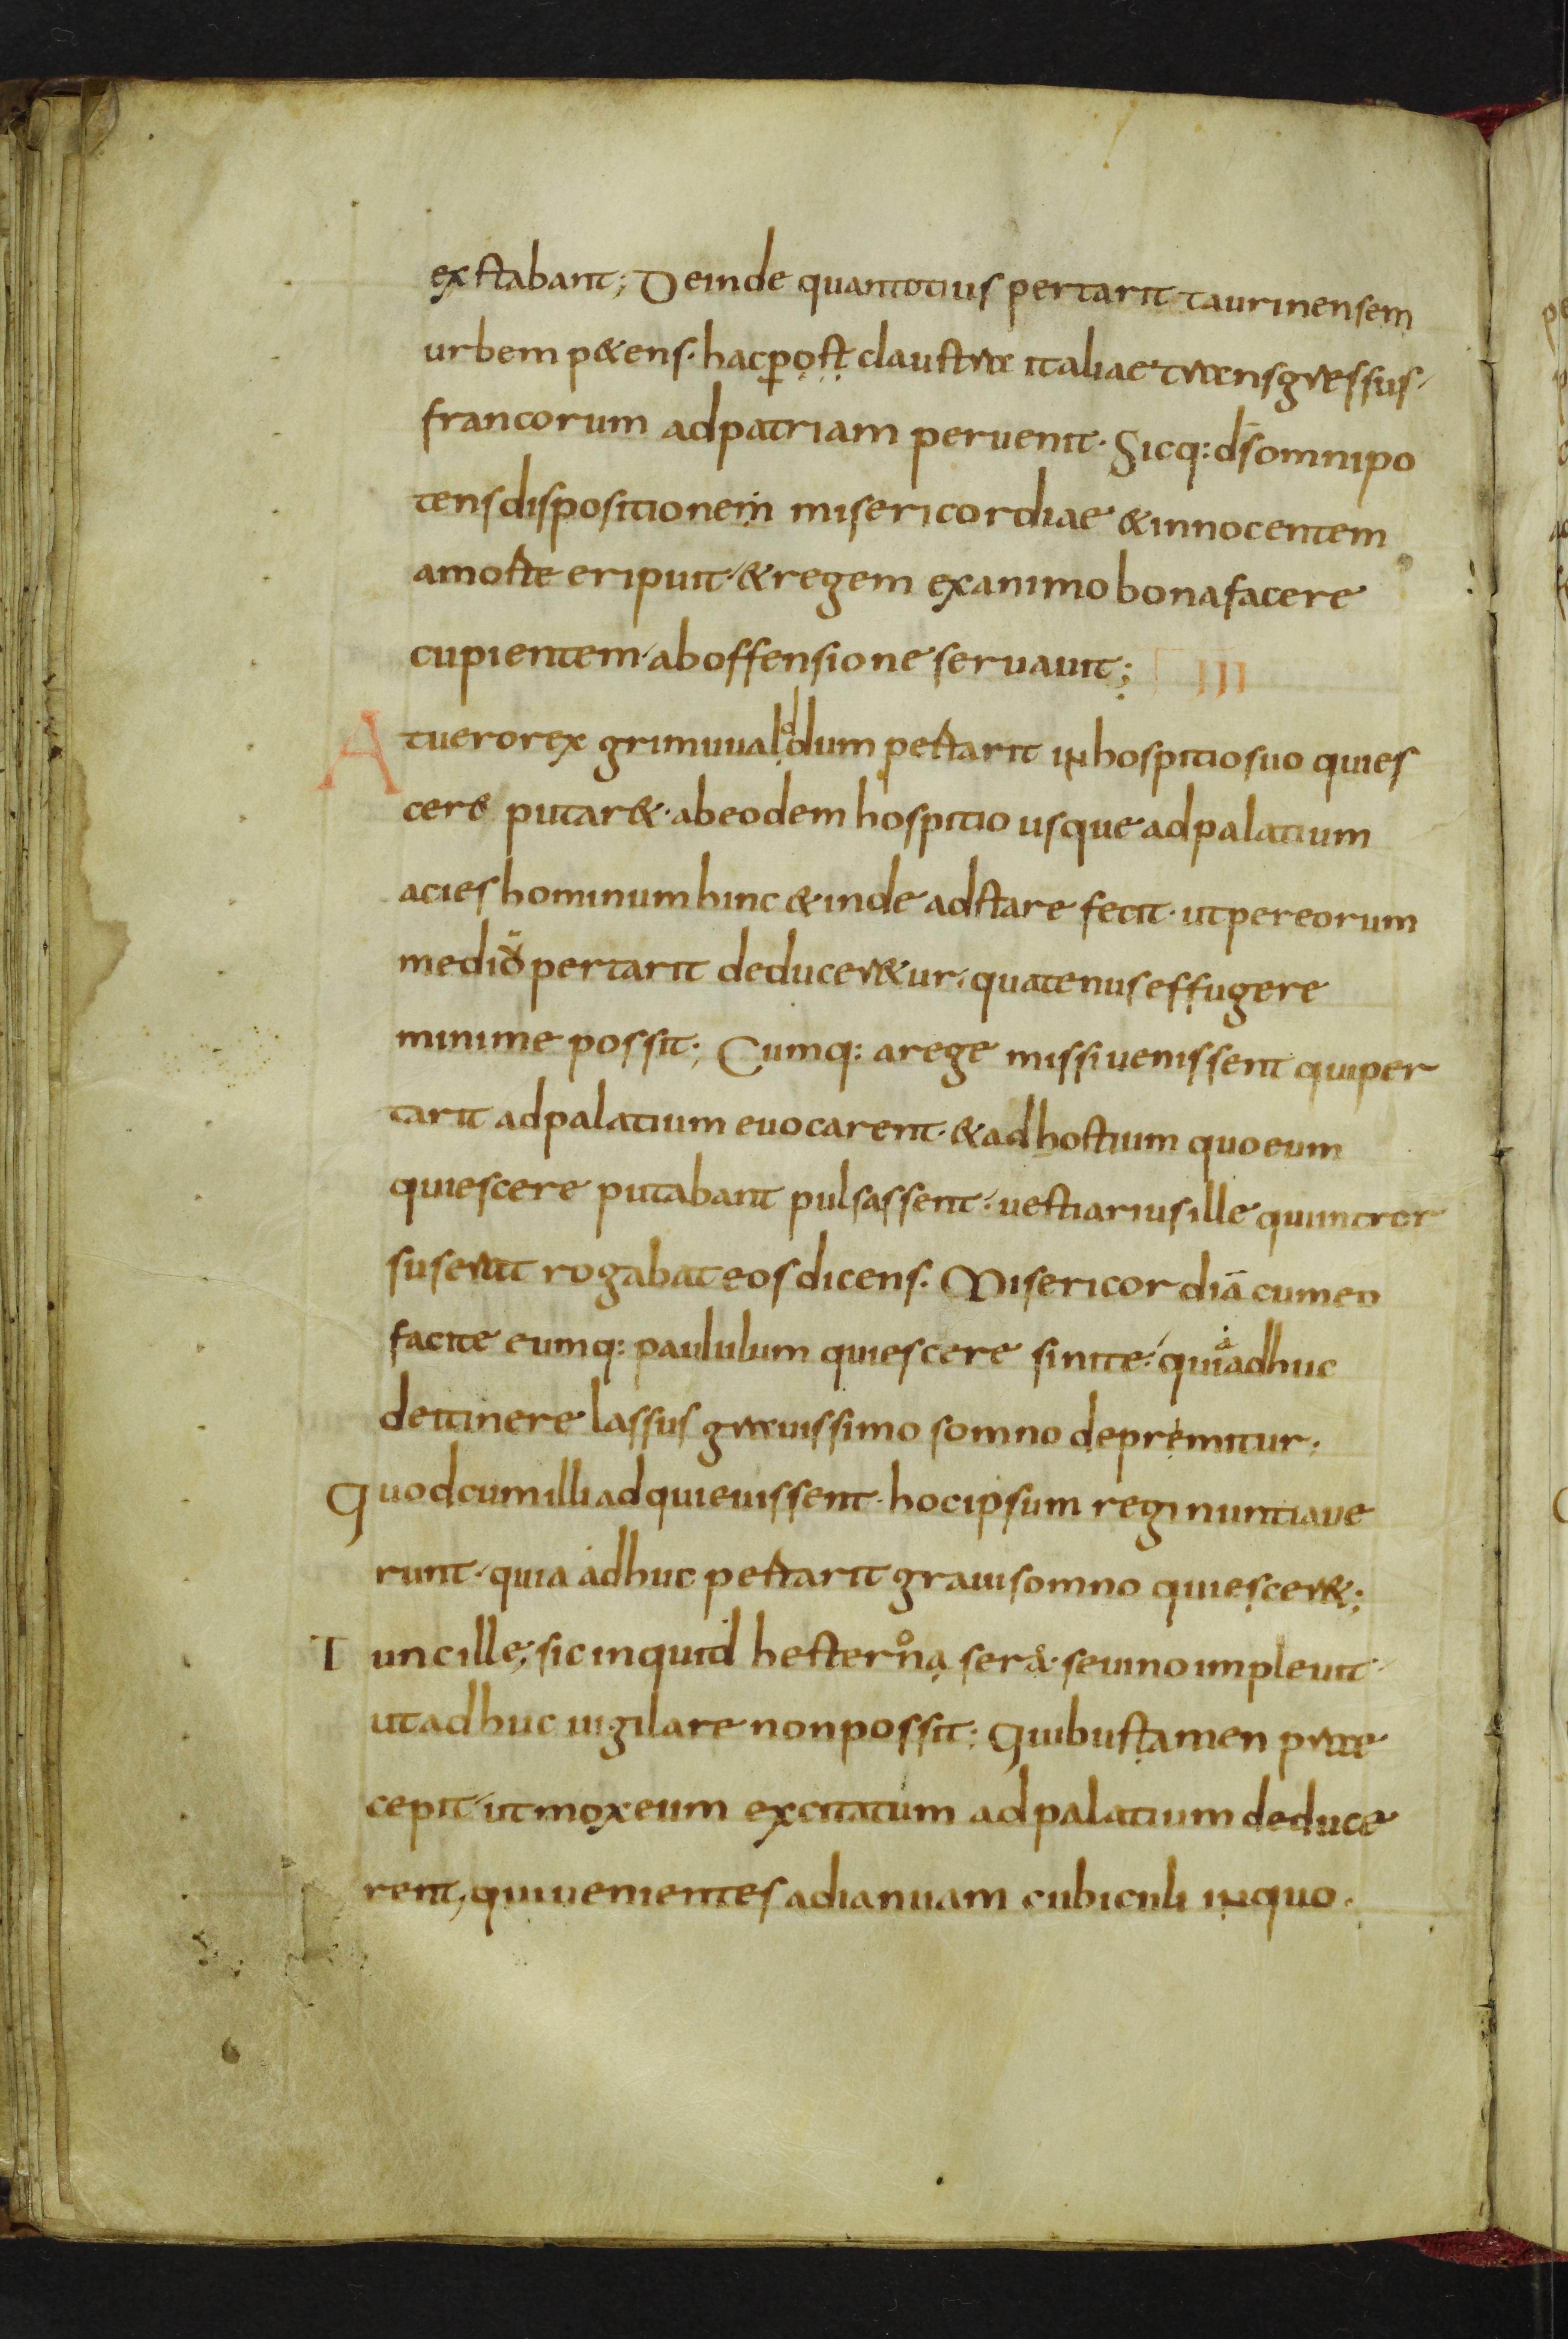 exstabant; Deinde quantotius pertarit taurinensem
urbem p&ens· hac post claustra italiae transgressus·
francorum ad patriam peruenit· Sicq: d̄s omnipo
tens dispositionem misericordiae & innocentem
amorte eripuit· & regem exanimo bona facere
cupientem· ab offensione seruauit; III
At uero rex grimuualdum pertarit in hospitio suo quies
cere putar&· ab eodem hospitio usque ad palatium
acies hominum hinc & inde adstare fecit· ut per eorum
medio pertarit deducer&ur· quatenus effugere
minime possit; Cumq: a rege missi uenissent qui per
tarit ad palatium euocarent· & ad hostium quo eum
quiescere putabant pulsassent· uestiarius ille qui intror
sus erat rogabat eos dicens· Misericordiā cum eo
facite eumq: paululum quiescere sinite· quia adhuc
de itinere lassus grauissimo somno depremitur·
Quod cum illi adquieuissent· hoc ipsum regi nuntiaue
runt· quia adhuc pertarit graui somno quiescer&;
Tunc ille; sic inquid hesterna ser& se uino impleuit·
ut adhuc uigilare non possit; Quibus tamen prae
cepit· ut mox eum excitatum ad palatium deduce
rent, qui uenientes ad ianuam cubiculi in quo·